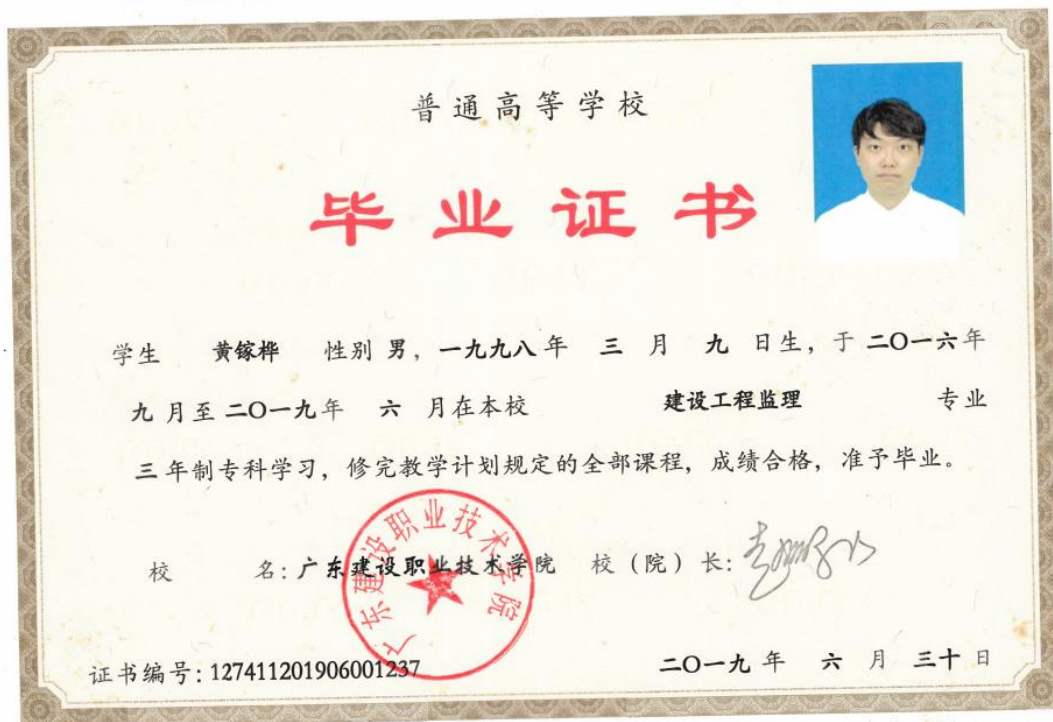 普通高等学校
毕业证书
学生 黄镓桦 性别 男，一九九八年 三 月 九 日生，于 二〇一六年
九 月至 二〇一九年 六 月在本校 建设工程监理 专业
三 年制专科学习，修完教学计划规定的全部课程，成绩合格，准予毕业。
校 名：广东建设职业技术学院 校（院）长：
广东建设职业技术学院
证书编号：127411201906001237 二〇一九 年 六 月 三十 日